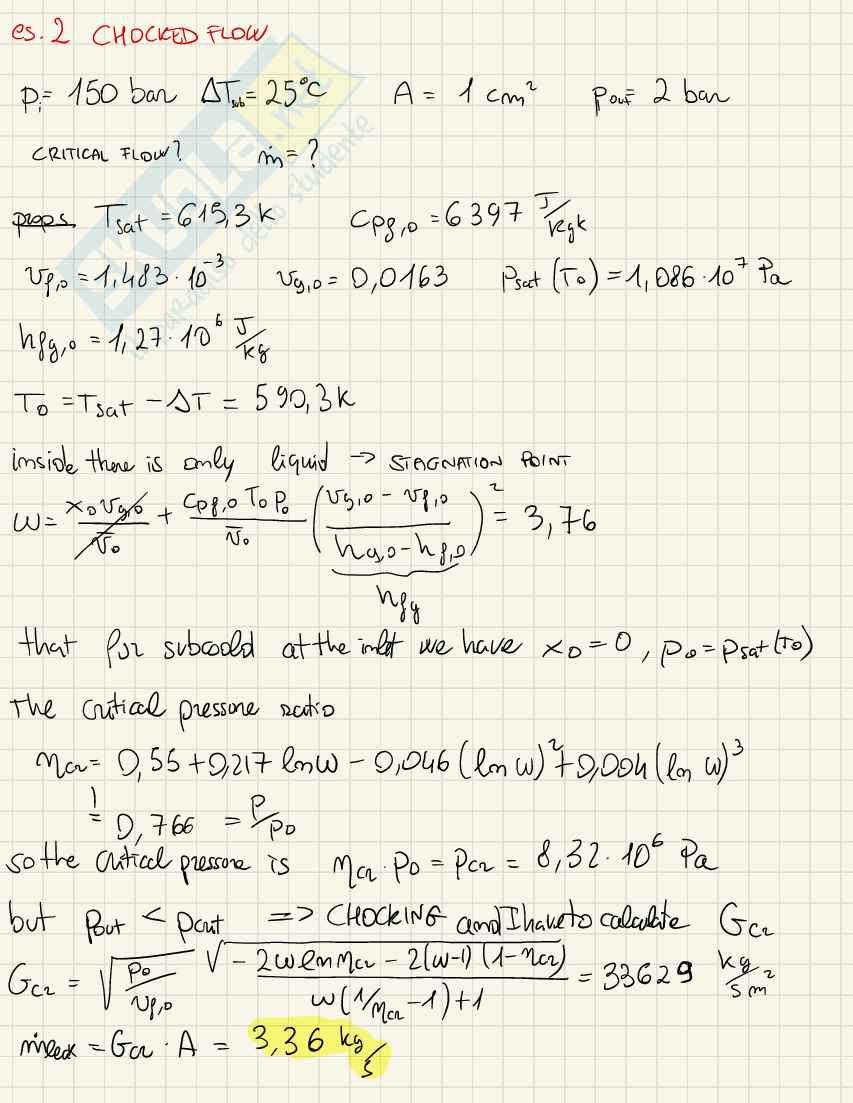 es. 2 CHOCKED FLOW
Pi = 150 bar ΔTsub = 25°C A = 1 cm² Pout = 2 bar
CRITICAL FLOW? ṁ = ?
props. Tsat = 615,3 K Cpf,0 = 6397 J/kgK
vf,0 = 1,483 · 10⁻³ vg,0 = 0,0163 Psat (T0) = 1,086 · 10⁷ Pa
hfg,0 = 1,27 · 10⁶ J/kg
T0 = Tsat − ΔT = 590,3 K
inside there is only liquid → STAGNATION POINT
ω = x0 vg,0 / v̅0 + Cpf,0 T0 P0 / v̅0 ( (vg,0 − vf,0) / (hg,0 − hf,0) )² = 3,76
hfg
that for subcoold at the inlet we have x0 = 0, p0 = psat (T0)
The critical pressure ratio
ηcr = 0,55 + 0,217 lnω − 0,046 (ln ω)² + 0,004 (ln ω)³
= 0,766 = P/P0
so the critical pressure is ηcr · P0 = Pcr = 8,32 · 10⁶ Pa
but Pout < Pcrit => CHOCKING and I have to calculate Gcr
Gcr = √(P0 / vf,0) √(−2ω ln ηcr − 2(ω−1) (1−ηcr)) / (ω(1/ηcr − 1) + 1) = 33629 kg/s m²
ṁleak = Gcr · A = 3,36 kg/s
SKUOLA.net
il paradiso dello studente